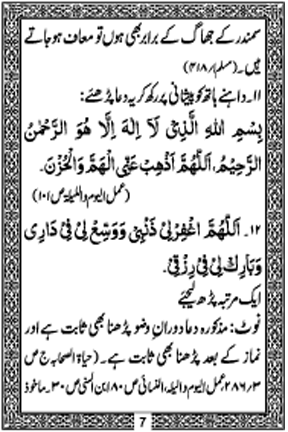 سمندر کے جھاگ کے برابر بھی ہوں تو معاف ہو جاتے
ہیں۔ (مسلم ۴۱۸/۱)
۱۱۔ داہنے ہاتھ کو پیشانی پر رکھ کر یہ دعا پڑھئے:
بِسْمِ اللهِ الَّذِیْ لَآ اِلٰهَ اِلَّا هُوَ الرَّحْمٰنُ
الرَّحِیْمُ، اَللّٰهُمَّ اَذْهِبْ عَنِّی الْهَمَّ وَالْحُزْنَ۔
(عمل الیوم واللیلہ ص ۱۰۱)
۱۲۔ اَللّٰهُمَّ اغْفِرْلِیْ ذَنْۢبِیْ وَوَسِّعْ لِیْ فِیْ دَارِیْ
وَبَارِكْ لِیْ فِیْ رِزْقِیْ۔
ایک مرتبہ پڑھ لیجئے
نوٹ: مذکورہ دعا دورانِ وضو پڑھنا بھی ثابت ہے اور
نماز کے بعد پڑھنا بھی ثابت ہے۔ (حیاۃ الصحابہ ج ص
۲۸۶/۳، عمل الیوم واللیلہ، النسائی ص ۸۰ ابن السنی ص ۳۰۔ ماخوذ
7